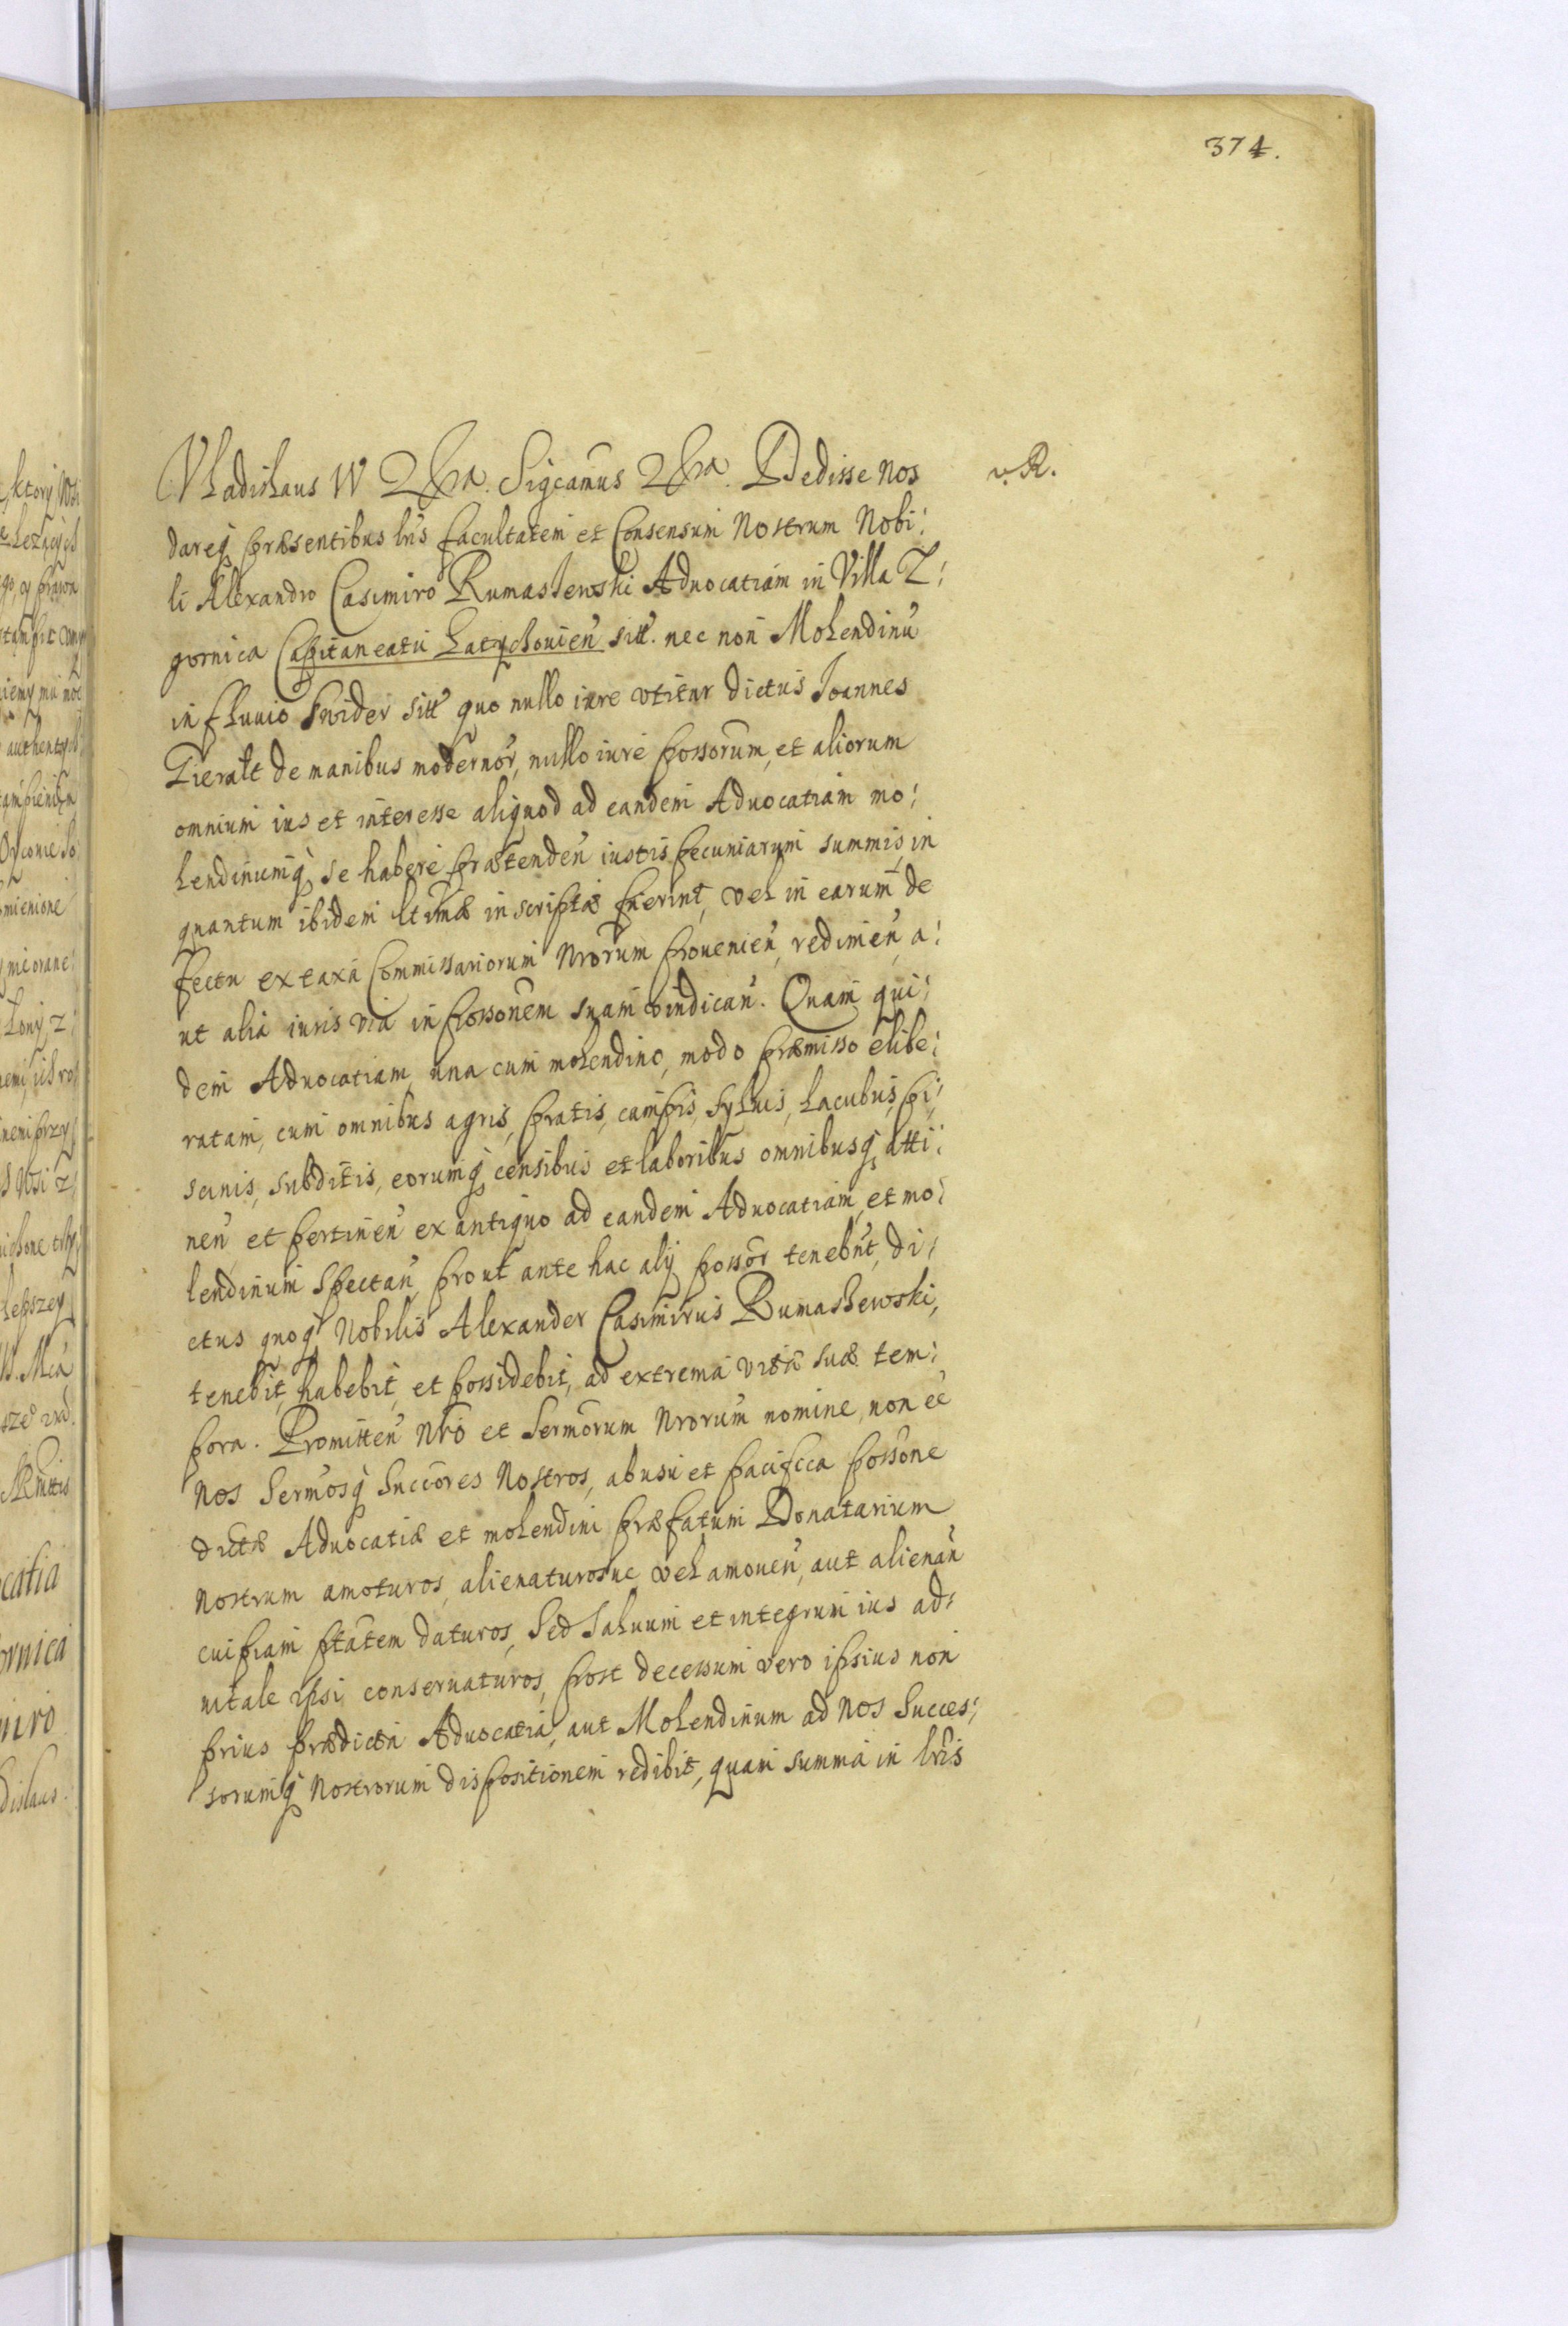 374.
Vladislaus IV &c̃ra. Sigcamus &c̃ra. Dedisse nos
v. R.
dareq; præsentibus lris facultatem et Consensum Nostrum Nobi:
li Alexandro Casimiro Rumaszewski Aduocatiam in Villa Z:
gornica Capitaneatu Latychouien̄ sitt. nec non Molendinū
in fluuio Swider sitt quo nullo iure vtitur dictus Joannes
Gieralt de manibus modernor, nullo iure possorum, et aliorum
omnium ius et interesse aliquod ad eandem Aduocatiam mo:
lendinumq; se habere prætenden̄ iustis pecuniarum summis, in
quantum ibidem ltimæ inscriptæ fuerint, vel in earum de
fectu ex taxa Commissariorum Nrorum prouenien̄, redimen̄, a:
ut alia iuris via in possonem suam vindican̄. Quam qui:
dem Aduocatiam, una cum molendino, modo præmisso elibe:
ratam, cum omnibus agris, pratis, campis, syluis, lacubus, pi:
scinis, subditis, eorumq; censibus et laboribus omnibusq; atti:
nen̄ et pertinen̄ ex antiquo ad eandem Aduocatiam, et mo:
lendinum spectan̄, prout ante hac alij possor tenebnt, di:
ctus quoq; Nobilis Alexander Casimirus Rumaszewski,
tenebit, habebit, et possidebit, ad extrema vitæ suæ tem:
pora. Promitten̄ Nro et Sermorum Nrorum nomine, non eē
nos Sermosq; Succores Nostros, ab usu et pacifcca possone
dictæ Aduocatiæ et molendini præfatum Donatarium
Nostrum amoturos, alienaturosue vel amouen̄, aut alienan̄
cuipiam ptatem daturos, Sed Saluum et integrum ius ad:
uitale ipsi conseruaturos, post decessum vero ipsius non
prius prædicta Aduocatia, aut Molendinum ad Nos Succes:
sorumq; Nostrorum dispositionem redibit, quam summa in lris